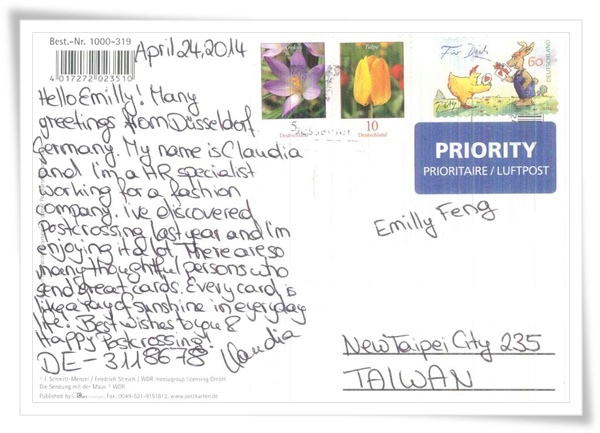 Best.-Nr. 1000-319
April 24, 2014
4 017272 023510
Hello Emilly! Many
greetings from Düsseldorf
Germany. My name is Claudia
and I'm a HR specialist
working for a fashion
company. I've discovered
Postcrossing last year and I'm
enjoying it a lot. There are so
many thoughtful persons who
send great cards. Every card is
like a ray of sunshine in everyday
life! Best wishes to you &
Happy Postcrossing!
Claudia
DE-3118678
© I. Schmitt-Menzel / Friedrich Streich / WDR mediagroup licensing GmbH
Die Sendung mit der Maus ® WDR
Published by
Fax: 0049-521-9151812, www.postkarten.de
Krokus
5
Deutschland
Tulpe
10
Deutschland
Für Dich
60
DEUTSCHLAND
PRIORITY
PRIORITAIRE / LUFTPOST
Emilly Feng
New Taipei City 235
TAIWAN